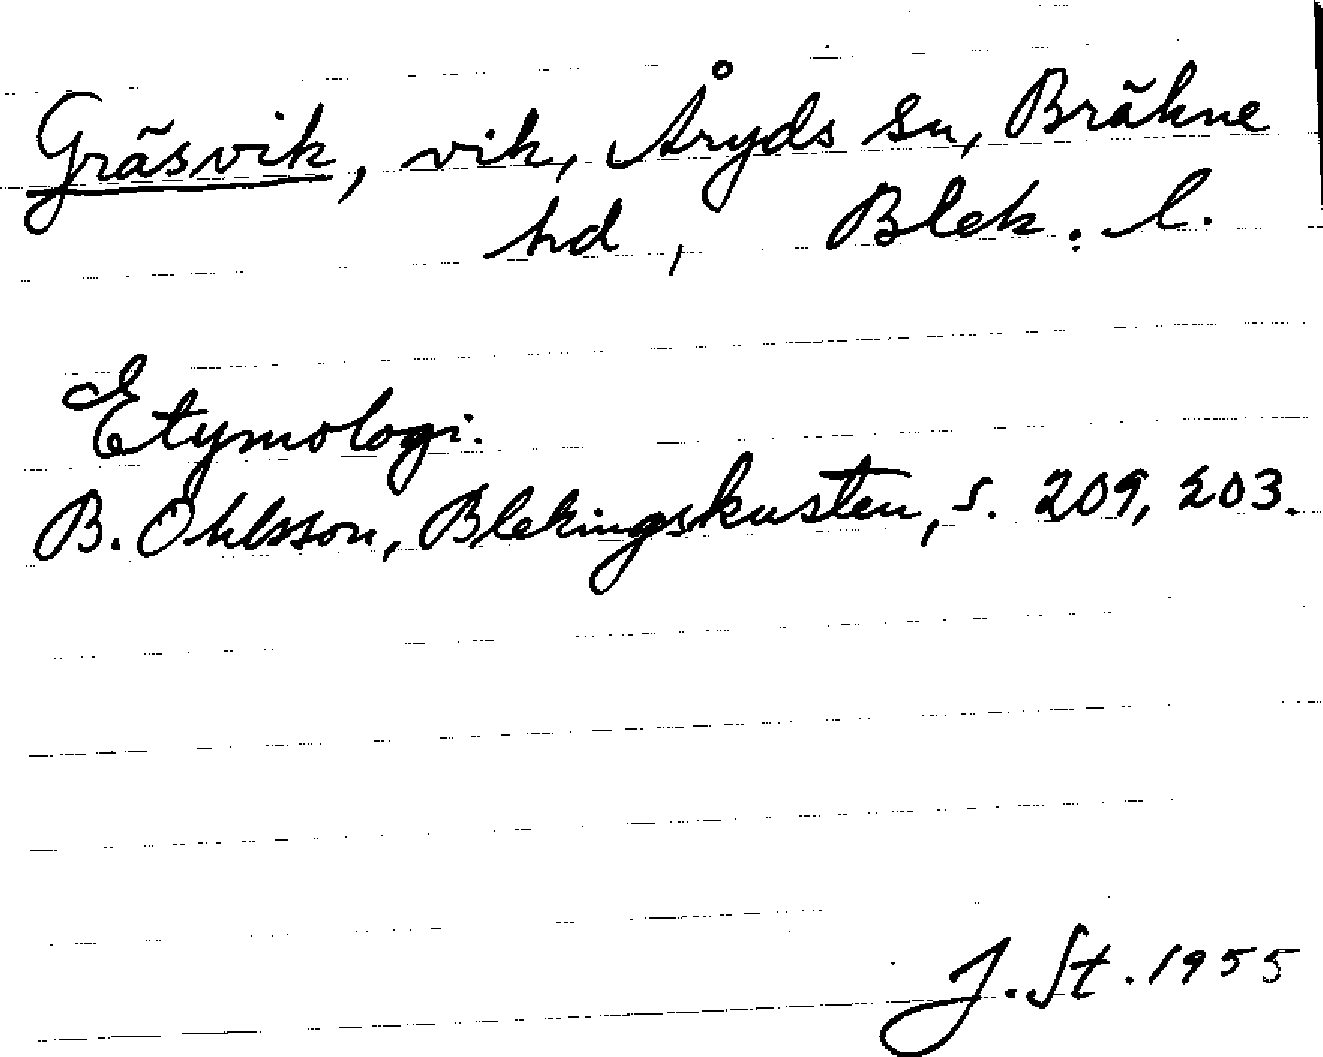 Gräsvik, vik, Åryds sn, Bräkne
hd, Blek. l.
Etymologi.
B. Ohlsson, Blekingskusten, s. 209, 203.
J. St. 1955